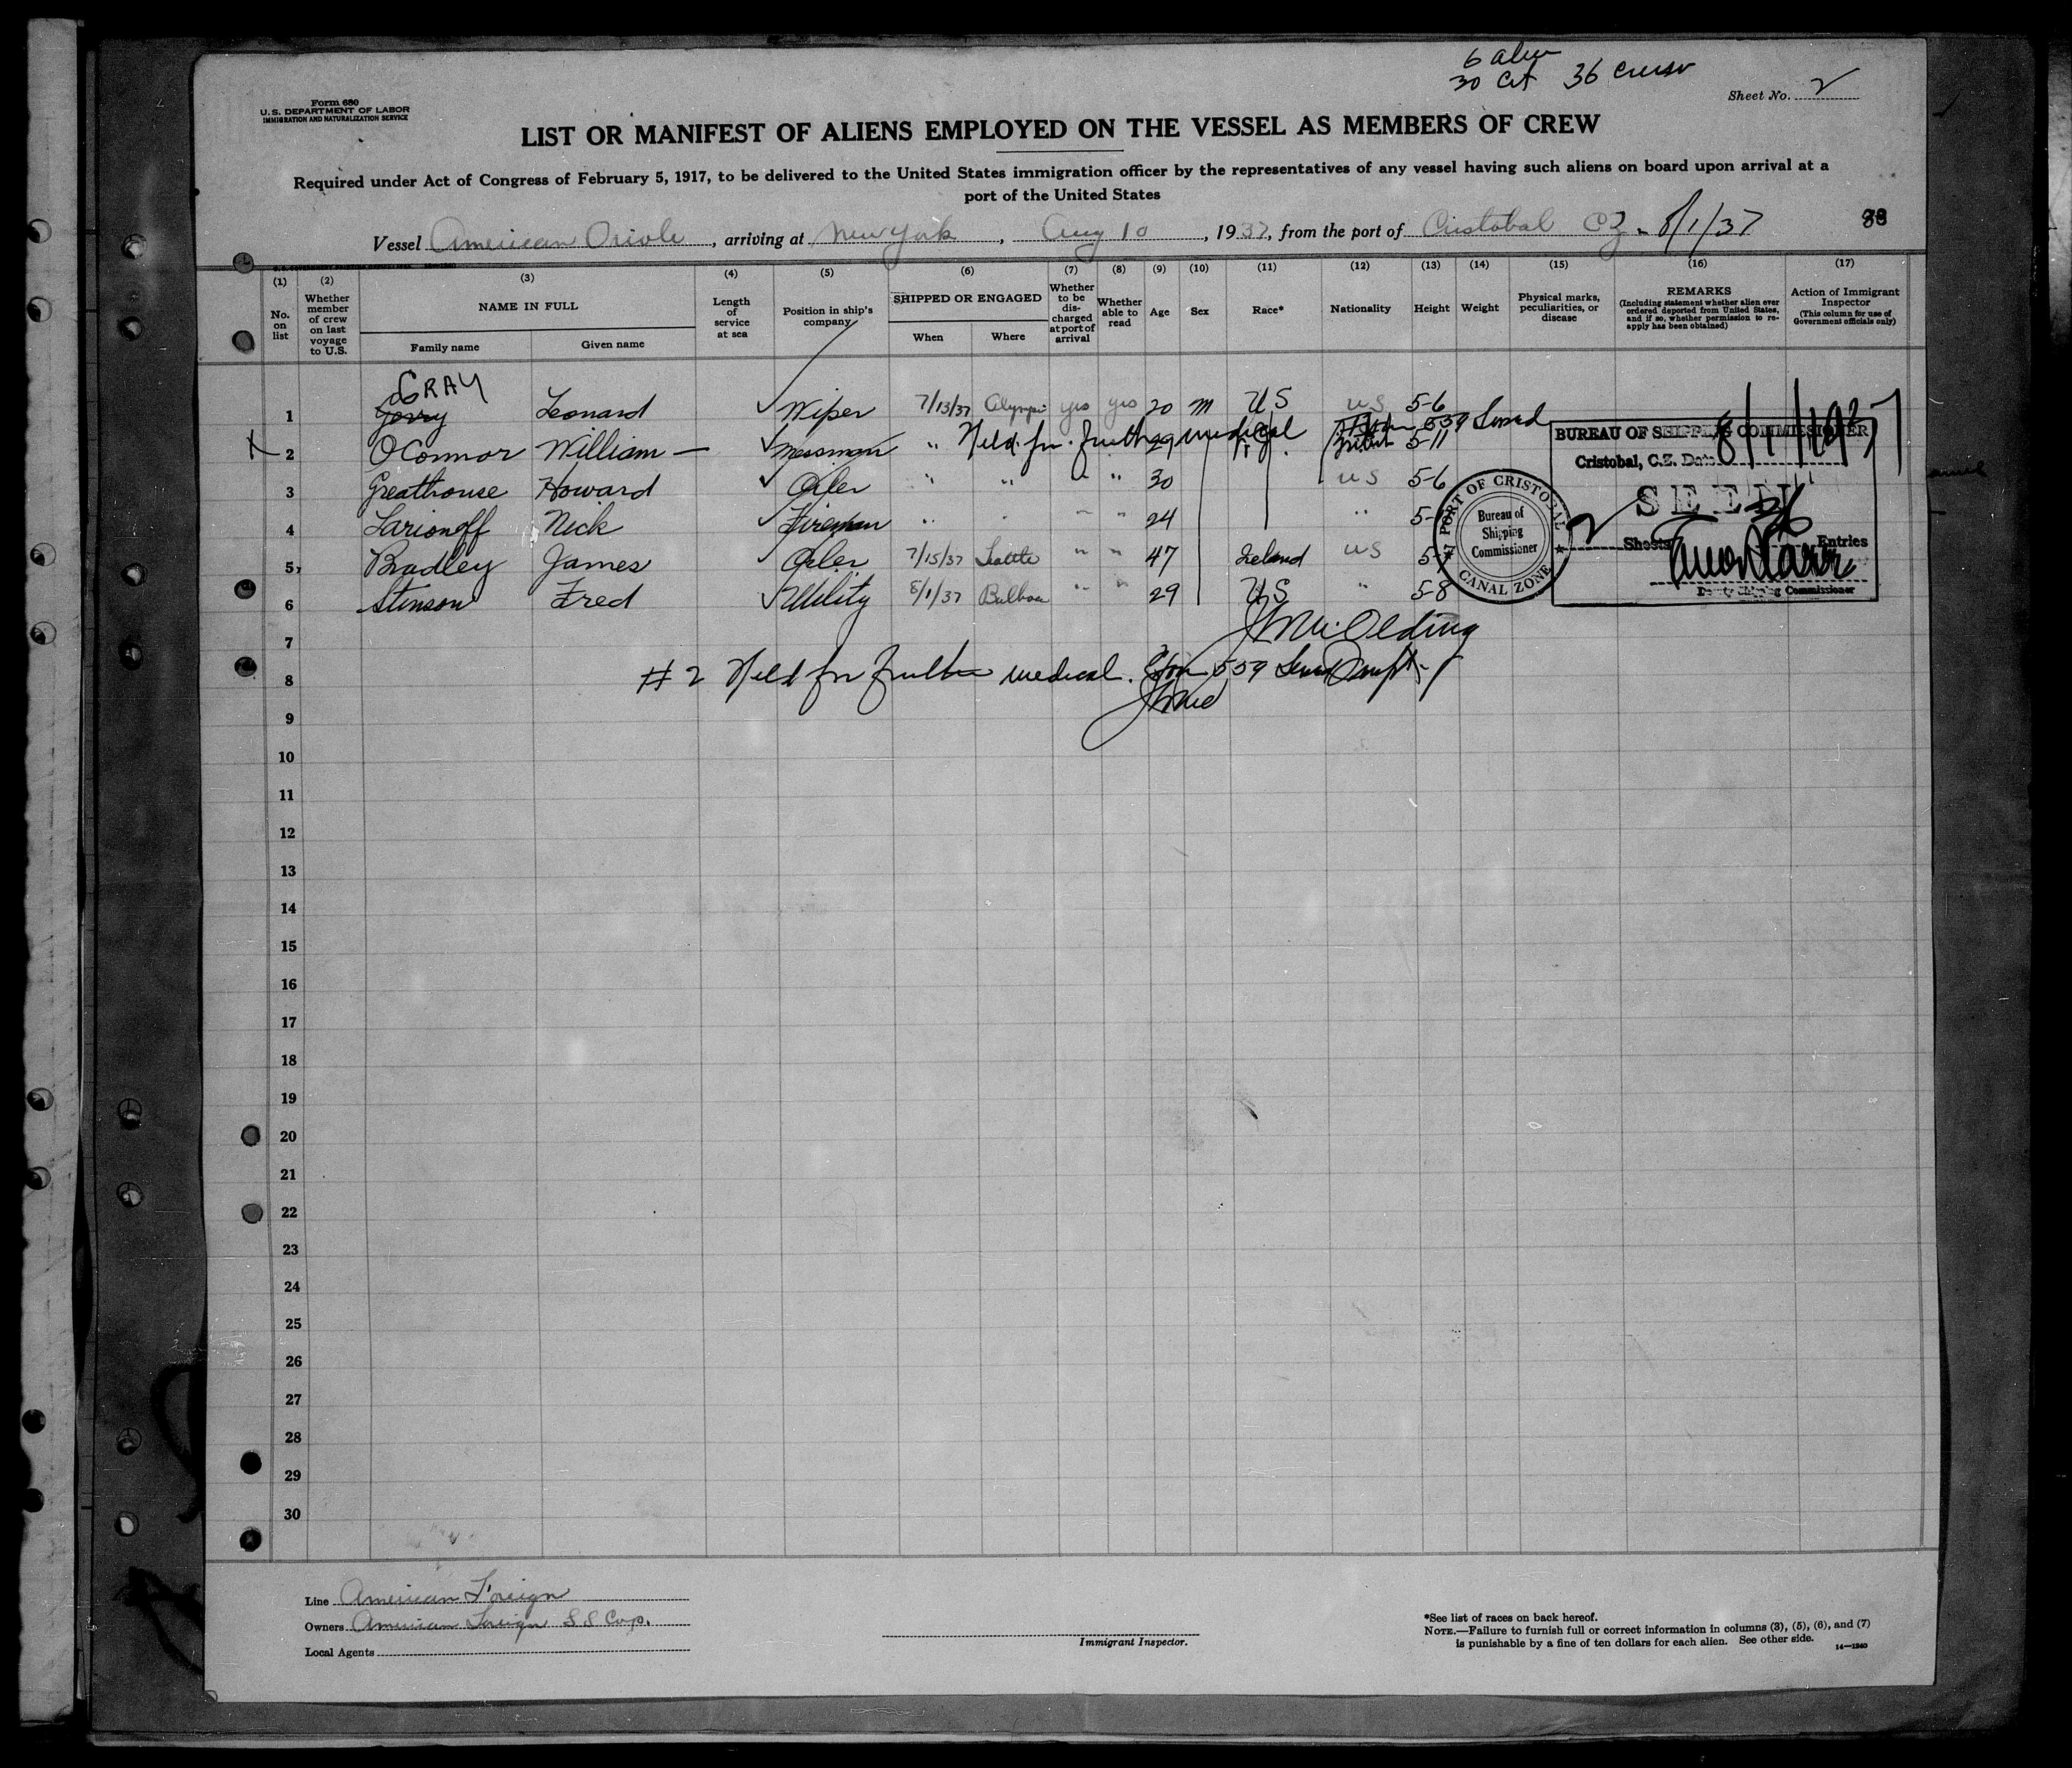 6 alien
30 Cit 36 Crew
Form 680
U.S. DEPARTMENT OF LABOR
IMMIGRATION AND NATURALIZATION SERVICE
Sheet No. 2
LIST OR MANIFEST OF ALIENS EMPLOYED ON THE VESSEL AS MEMBERS OF CREW
Required under Act of Congress of February 5, 1917, to be delivered to the United States immigration officer by the representatives of any vessel having such aliens on board upon arrival at a
port of the United States
Vessel American Oriole, arriving at New York, Aug 10, 1937, from the port of Cristobal CZ - 8/1/37
(1) (2) (3) (4) (5) (6) (7) (8) (9) (10) (11) (12) (13) (14) (15) (16) (17)
No. on list
Whether member of crew on last voyage to U.S.
NAME IN FULL
Family name
Given name
Length of service at sea
Position in ship's company
SHIPPED OR ENGAGED
When
Where
Whether to be discharged at port of arrival
Whether able to read
Age
Sex
Race*
Nationality
Height
Weight
Physical marks, peculiarities, or disease
REMARKS
(Including statement whether alien ever ordered deported from United States, and if so, whether permission to reapply has been obtained)
Action of Immigrant Inspector
(This column for use of Government officials only)
GRAY
1 Leonard Wiper 7/13/37 Olympia yes yes 20 m US US 5-6
Held for further medical 559 Served
2 O'Connor William — Messman " 29 British 5-11
3 Greathouse Howard Oiler " " " " 30 US 5-6
4 Larionoff Nick Fireman " " " " 24 " 5-
5 Bradley James Oiler 7/15/37 Seattle " " 47 Ireland US 5-
6 Stenson Fred Utility 8/1/37 Balboa " " 29 US " 5-8
BUREAU OF SHIPPING COMMISSIONER
Cristobal, C.Z. Date 8/1/1937
SEEN
2 Sheets 36 Entries
Deputy Shipping Commissioner
PORT OF CRISTOBAL
Bureau of
Shipping
Commissioner
CANAL ZONE
7
8 #2 Held for further medical. Form 559
9
10
11
12
13
14
15
16
17
18
19
20
21
22
23
24
25
26
27
28
29
30
Line American Foreign
Owners American Foreign S S Corp.
Local Agents
Immigrant Inspector.
*See list of races on back hereof.
NOTE.—Failure to furnish full or correct information in columns (3), (5), (6), and (7)
is punishable by a fine of ten dollars for each alien. See other side.
14—1240